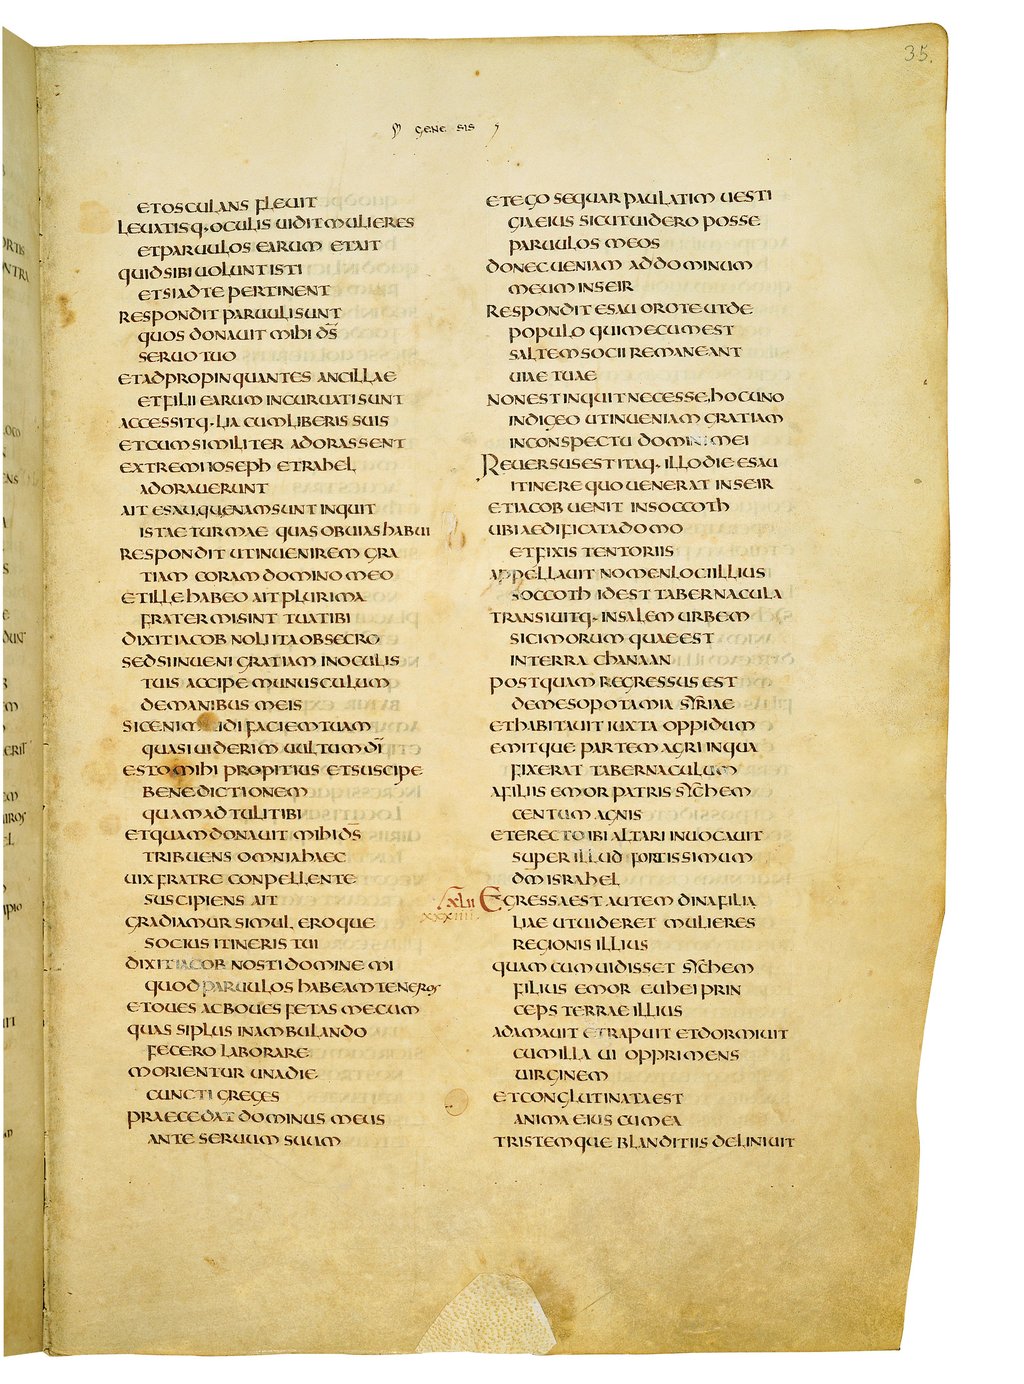 35.
GENESIS
ET OSCULANS FLEUIT
LEUATISQ· OCULIS UIDIT MULIERES
ET PARUULOS EARUM ET AIT
QUID SIBI UOLUNT ISTI
ET SI AD TE PERTINENT
RESPONDIT PARUULI SUNT
QUOS DONAUIT MIHI D̅S̅
SERUO TUO
ET ADPROPINQUANTES ANCILLAE
ET FILII EARUM INCURUATI SUNT
ACCESSITQ· LIA CUM LIBERIS SUIS
ET CUM SIMILITER ADORASSENT
EXTREMI IOSEPH ET RAHEL
ADORAUERUNT
AIT ESAU QUENAM SUNT INQUIT
ISTAE TURMAE QUAS OBUIAS HABUI
RESPONDIT UT INUENIREM GRA
TIAM CORAM DOMINO MEO
ET ILLE HABEO AIT PLURIMA
FRATER MI SINT TUA TIBI
DIXIT IACOB NOLI ITA OBSECRO
SED SI INUENI GRATIAM IN OCULIS
TUIS ACCIPE MUNUSCULUM
DE MANIBUS MEIS
SIC ENIM UIDI FACIEM TUAM
QUASI UIDERIM UULTUM D̅I̅
ESTO MIHI PROPITIUS ET SUSCIPE
BENEDICTIONEM
QUAM ADTULI TIBI
ET QUAM DONAUIT MIHI D̅S̅
TRIBUENS OMNIA HAEC
UIX FRATRE CONPELLENTE
SUSCIPIENS AIT
GRADIAMUR SIMUL EROQUE
SOCIUS ITINERIS TUI
DIXIT IACOB NOSTI DOMINE MI
QUOD PARUULOS HABEAM TENEROS
ET OUES AC BOUES FETAS MECUM
QUAS SI PLUS IN AMBULANDO
FECERO LABORARE
MORIENTUR UNA DIE
CUNCTI GREGES
PRAECEDAT DOMINUS MEUS
ANTE SERUUM SUUM
ET EGO SEQUAR PAULATIM UESTI
GIA EIUS SICUT UIDERO POSSE
PARUULOS MEOS
DONEC UENIAM AD DOMINUM
MEUM IN SEIR
RESPONDIT ESAU ORO TE UT DE
POPULO QUI MECUM EST
SALTEM SOCII REMANEANT
UIAE TUAE
NON EST INQUIT NECESSE, HOC UNO
INDIGEO UT INUENIAM GRATIAM
IN CONSPECTU DOMINI MEI
REUERSUS EST ITAQ· ILLO DIE ESAU
ITINERE QUO UENERAT IN SEIR
ET IACOB UENIT IN SOCCOTH
UBI AEDIFICATA DOMO
ET FIXIS TENTORIIS
APPELLAUIT NOMEN LOCI ILLIUS
SOCCOTH ID EST TABERNACULA
TRANSIUITQ· IN SALEM URBEM
SICIMORUM QUAE EST
IN TERRA CHANAAN
POSTQUAM REGRESSUS EST
DE MESOPOTAMIA SYRIAE
ET HABITAUIT IUXTA OPPIDUM
EMITQUE PARTEM AGRI IN QUA
FIXERAT TABERNACULUM
A FILIIS EMOR PATRIS SYCHEM
CENTUM AGNIS
ET ERECTO IBI ALTARI INUOCAUIT
SUPER ILLUD FORTISSIMUM
D̅M̅ ISRAHEL
XLII EGRESSA EST AUTEM DINA FILIA
XXXIIII. LIAE UT UIDERET MULIERES
REGIONIS ILLIUS
QUAM CUM UIDISSET SYCHEM
FILIUS EMOR EUHEI PRIN
CEPS TERRAE ILLIUS
ADAMAUIT ET RAPUIT ET DORMIUIT
CUM ILLA UI OPPRIMENS
UIRGINEM
ET CONGLUTINATA EST
ANIMA EIUS CUM EA
TRISTEMQUE BLANDITIIS DELINIUIT